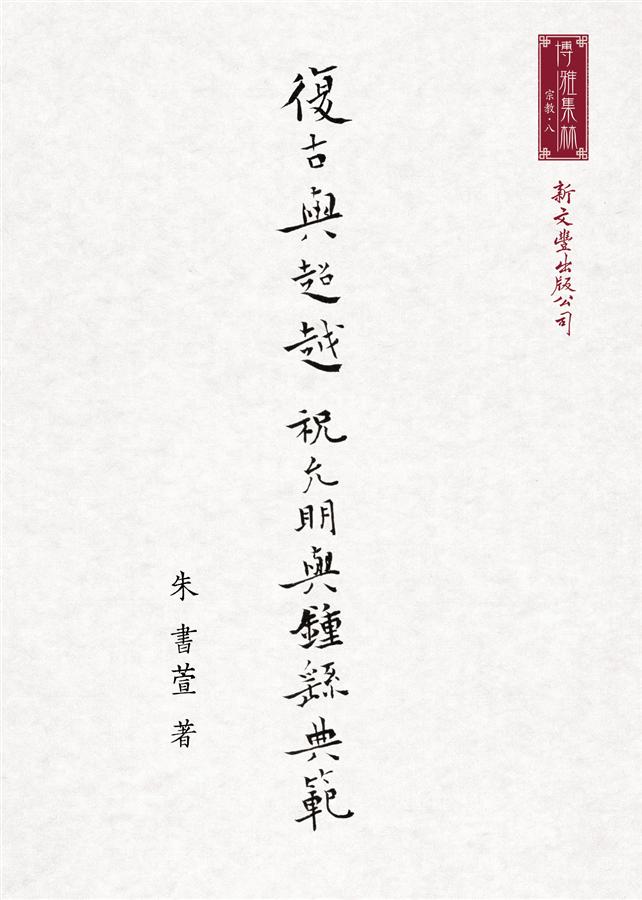 博雅集林
宗教·八
新文豐出版公司
復古與超越 祝允明與鍾繇典範
朱書萱 著